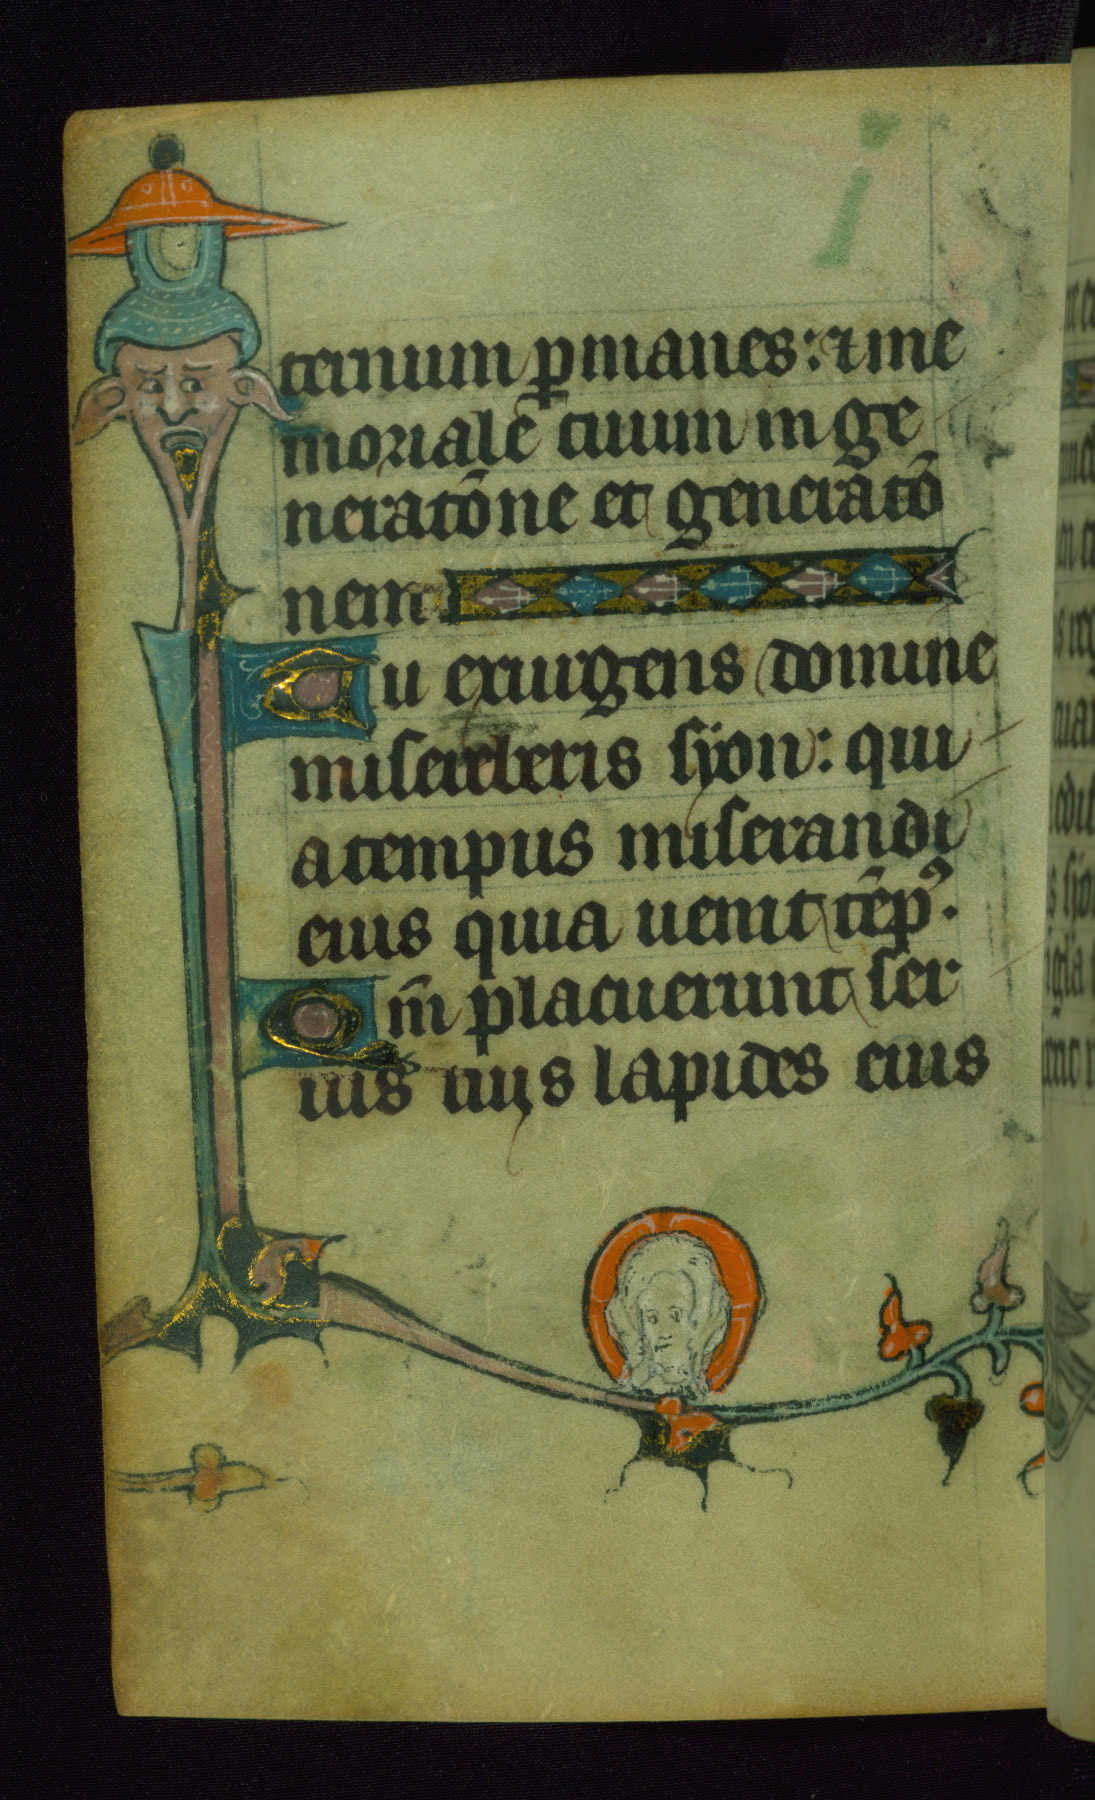 ternum ꝑmanes: ⁊ me
moriale᷒ tuum in ge
neratōne et generātō
nem
Tu exurgens domine
misereberis syon: qui
a tempus miserandi
eius quia uenit tēpꝰ.
Qm̄ placuerunt ser
uis tuis lapides eius